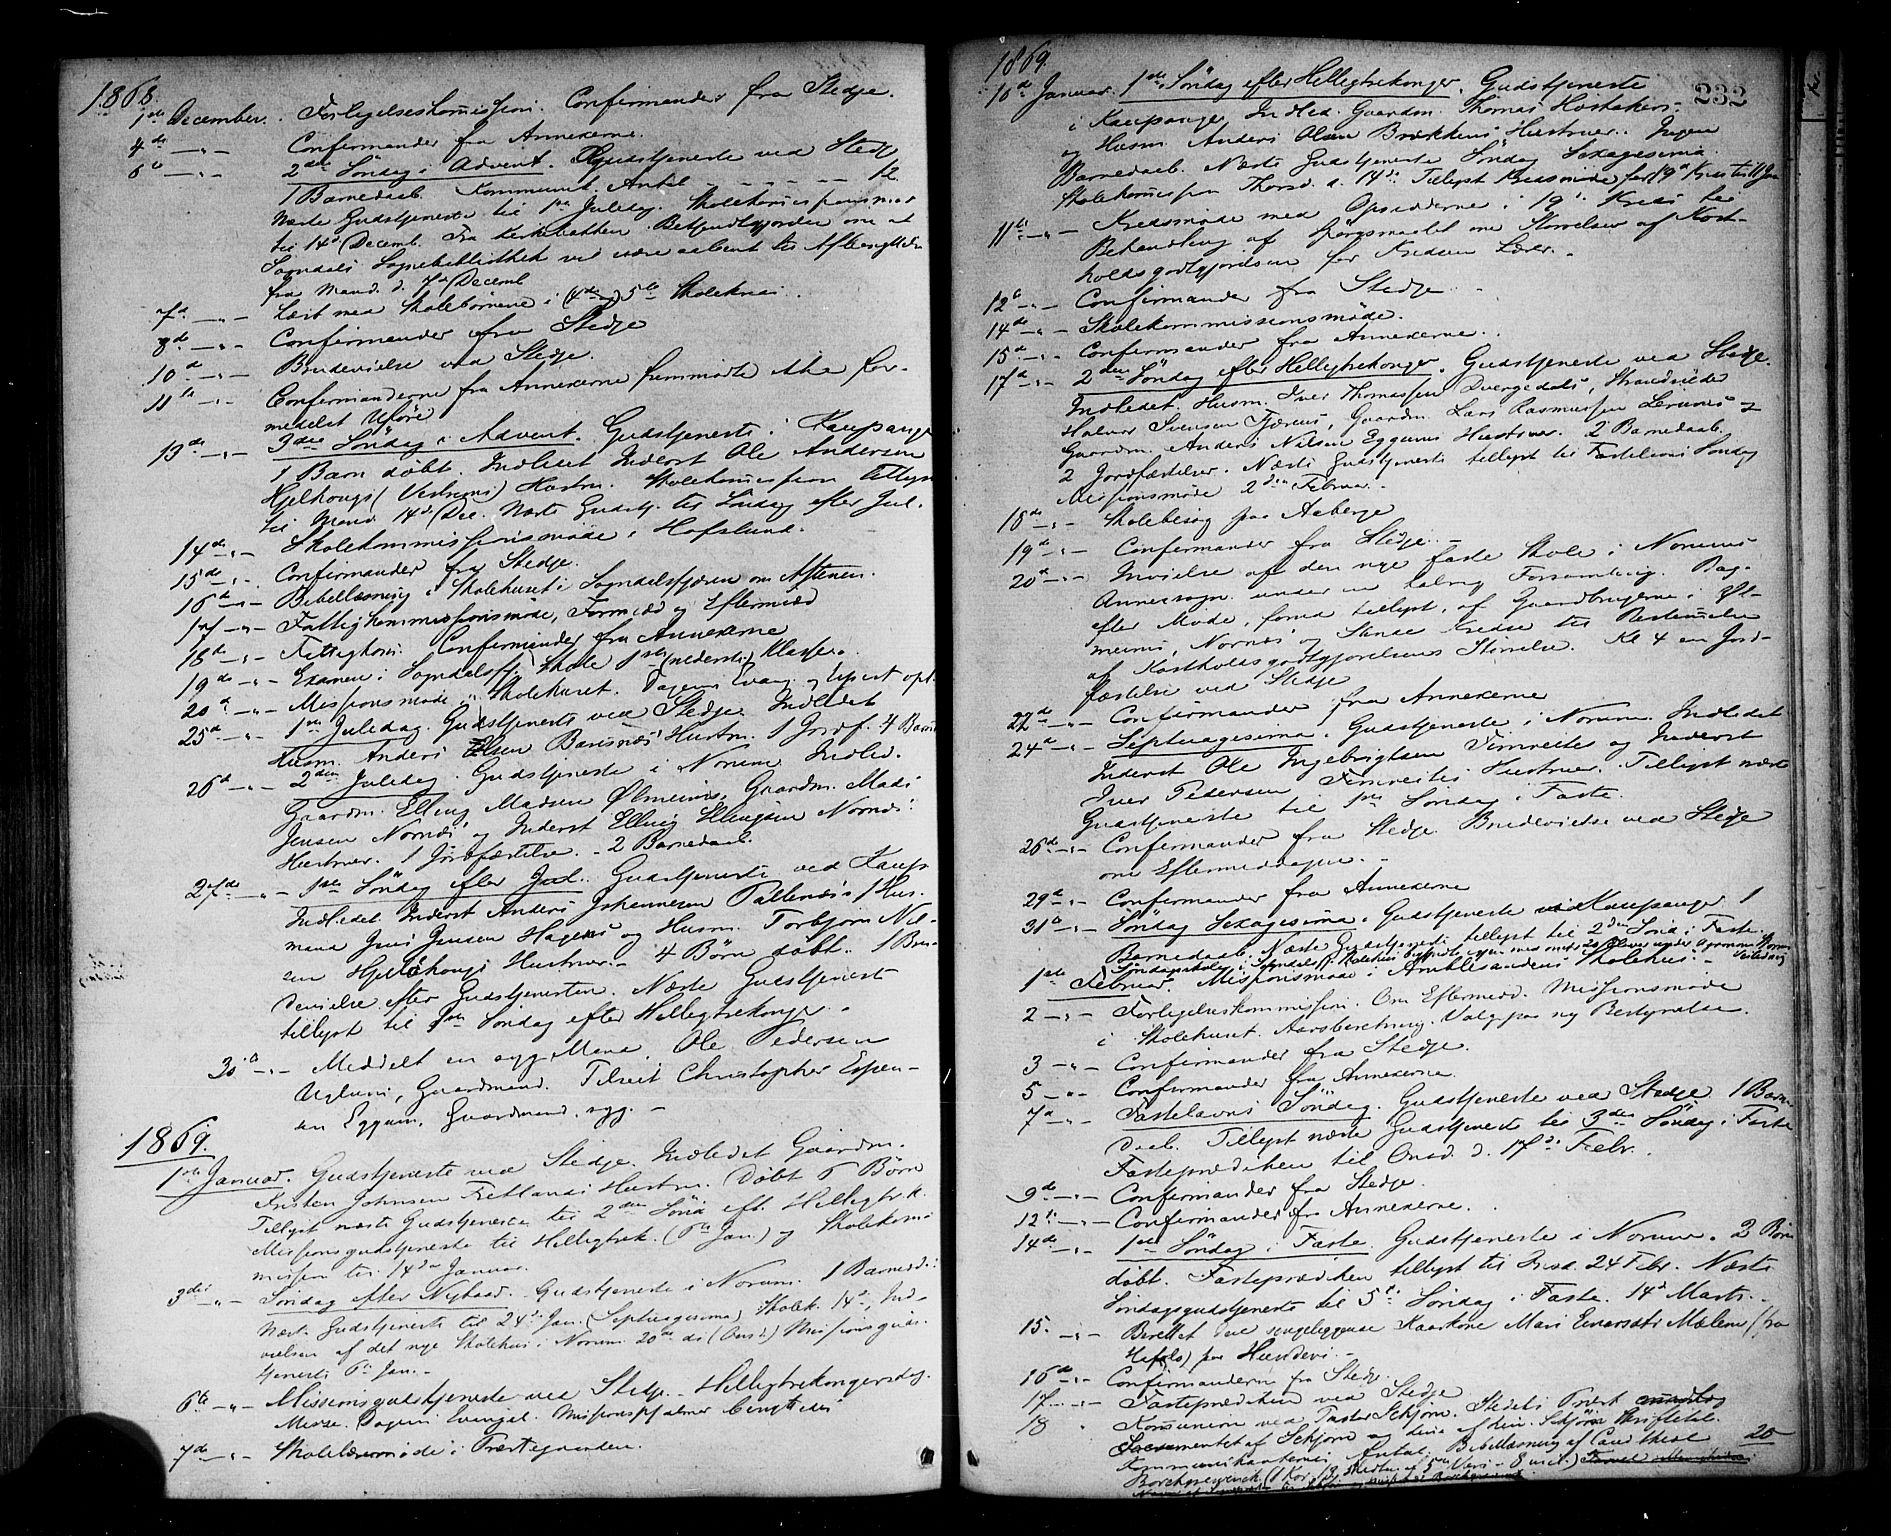 1868.
1ste December. Forligelseskommission. Confirmander fra Stedje.
4de —„— Confirmander fra Annexerne.
6te —„— 2den Söndag i Advent. Gudstjeneste ved Stedje
1 Barnedaab. Kommunik. Antal — — — — — 12
Næste Gudstjeneste til 1ste Juledag. Skolekommissionsmøde
til 14de Decemb. Fra
Sogndals Sognebibliothek vil være aabent til
fra Mand. d. 7de Decemb
7de —„— Læst med Skolebørnene i (4de og) 5te Skolekreds.
8de —„— Confirmander fra Stedje
10de —„— Brudevielse ved Stedje.
11te —„— Confirmanderne fra Annexerne fremmødte ikke for-
medelst Uføre
13de —„— 3die Söndag i Advent. Gudstjeneste i Kaupanger
1 Barn døbt. Indledet Inderst Ole Andersen
Hjelhougs (Vestrems) Hustru. Skolekommission tillyst
til Mand. 14de Dec. Næste Gudstj. til Söndag efter Jul.
14de —„— Skolekommissionsmöde i Hofslund.
15de —„— Confirmander fra Stedje.
16de —„— Bibellæsning i Skolehuset i Sogndalsfjæren om Aftenen.
17 —„— Fattigkommissionsmöde, Formidd og Eftermidd
18de —„— Fattigkom. Confirmander fra Annexerne
19de —„— Examen i Sogndalsfj. Skole 1ste (nederste) Klasse.
20de —„— Missionsmøde i Skolehuset. Dagens Evang. og
25de —„— 1ste Juledag. Gudstjeneste ved Stedje. Indledet
Husm. Anders Olsen Barsnes' Hustru. 1 Jordf. 4 Barned
26de —„— 2den Juledag. Gudstjeneste i Norum. Indled.
Gaardm. Elling Madsen Ølmeims, Gaardm. Mads
Jensen Nornes og Inderst Elling Ellingsen Nornes'
Hustruer. 1 Jordfæstelse. – 2 Barnedaab.
27de —„— 1ste Söndag efter Jul. Gudstjeneste ved Kaup.
Indledet Inderst Anders Johannesen Hus-
mand Jens Jensen Hagens og Husm. Torbjørn Nil-
sen Hjelhougs Hustruer. – 4 Börn döbt. 1 Bru-
devielse efter Gudstjenesten. Næste Gudstjeneste
tillyst til 1ste Söndag efter Helligtrekonger.
30te —„— Meddelt en syg Mand, Ole Pedersen
Uglum, Gaardmand. Tilseet Christopher Espen-
sen Eggum, Gaardmand, syg. –
1869.
1ste Januar. Gudstjeneste ved Stedje. Indledet Gaardm.
Kristen Johnsen Fretlands Hustru. Døbt 6 Børn
Tillyst næste Gudstjeneste til 2den Sönd eft. Helligtrek.
Missionsgudstjeneste til Helligtrek. (6te Jan.) og Skolekom-
mission til 14de Januar.
3die —„— Söndag efter Nytaar. Gudstjeneste i Norum. 1 Barnedaab
Næste Gudstjeneste til 24de Jan. (Septuagesima) Skolek. 14de, Ind-
vielsen af det nye Skolehus i Norum 20de ds (Onsd.) Missionsguds-
tjeneste 6te Jan. –
6te —„— Missionsgudstjeneste ved Stedje – Helligtrekongersdag.
Messe. Dagens Evangel. Missionspsalmer benyttedes
7de —„— Skolelærermöde i Præstegaarden.
1869.
232
10de Januar. 1ste Söndag efter Helligtrekonger. Gudstjeneste
i Kaupanger. Indled. Gaardm. Thomas
og Husm. Anders Olsen Brækkens Hustruer. Ingen
Barnedaab. Næste Gudstjeneste Söndag Sexagesima
Skolekommission Thorsd. d. 14de. Tillyst Kredsmöde for 19de Kreds til 11 Jan
11te —„— Kredsmöde med Opsidderne i 19de Kreds til
Behandling af Spörgsmaalet om Störrelsen af Kost-
holdsgodtgjørelsen for Kredsens Lærer. –
12te —„— Confirmander fra Stedje.
14de —„— Skolekommissionsmöde.
15de —„— Confirmander fra Annexerne.
17de —„— 2den Söndag efter Helligtrekonger. Gudstjeneste ved Stedje.
Indledet. Husm. Iver Thomassen Dvergedals, Strandsidder
Halvor Svensen Fjærens, Gaardm. Lars Rasmussen og
Gaardm. Anders Nilsen Eggums Hustruer. 2 Barnedaab.
2 Jordfæstelser. Næste Gudstjeneste tillyst til Fastelavns Söndag
Missionsmøde 2den Februar. –
18de —„— Skolebesög paa Aaberge
19de —„— Confirmander fra Stedje. –
20de —„— Indvielse af den nye faste Skole i Norums
Annexsogn under en talrig Forsamling. Dag-
efter Möde, forud tillyst, af Gaardbrugerne i Øl-
meims, Nornes og Kredse til Bestemmelse
af Kostholdsgodtgjørelsens Störrelse. Kl 4 en Jord-
fæstelse ved Stedje
22de —„— Confirmander fra Annexerne
24de —„— Septuagesima. Gudstjeneste i Norum. Indledet
Inderst Ole Ingebrigtsen Fimreites og Inderst
Iver Pedersen Fimreites Hustruer. Tillyst næste
Gudstjeneste til 1ste Söndag i Faste.
26de —„— Confirmander fra Stedje. Brudevielse ved Stedje
om Eftermiddagen. –
29de —„— Confirmander fra Annexerne
31te —„— Söndag Sexagesima. Gudstjeneste i Kaupanger 1
Barnedaab. Næste Gudstjeneste tillyst til 2den Sönd. i Faste.
Söndagsskolen i Sogndalsfj. Skolehus begyndte igjen med omtr. 20 Elever under Veiledning
1ste Februar. Missionsmøde i Amblesandens Skolehus. –
2 —„— Forligelseskommission. Om Eftermidd. Missionsmöde
i Skolehuset. Aarsberetning. Valg paa ny Bestyrelse.
3 —„— Confirmander fra Stedje.
5 —„— Confirmander fra Annexerne.
7de —„— Fastelavns Söndag. Gudstjeneste ved Stedje. 1 Barne-
daab. Tillyst næste Gudstjeneste til 3die Söndag i Faste
Fasteprædiken til Onsd. d. 17de Febr.
9de —„— Confirmander fra Stedje.
12te —„— Confirmander fra Annexerne.
14de —„— 1ste Söndag i Faste. Gudstjeneste i Norum. 2 Börn
døbt. Fasteprædiken tillyst til Onsd. 24 Febr. Næste
Söndagsgudstjeneste til 5te Söndag i Faste. 14de Marts. –
15. —„— Berettet den sengeliggende Kaarkone Mari Einarsdt. Mælem (fra
paa –
16de —„— Confirmanderne fra Stedje.
17. —„— Fasteprædiken ved Stedje
18 „ Kommunion ved Pastor Schjörn. Stedets Præst
Sacramentet af Schjörn og denne af dem. Schjörn
Kommunikanternes Antal. Bibellæsning af Cand theol 20
Borchgrevinck (1 Kor. 13